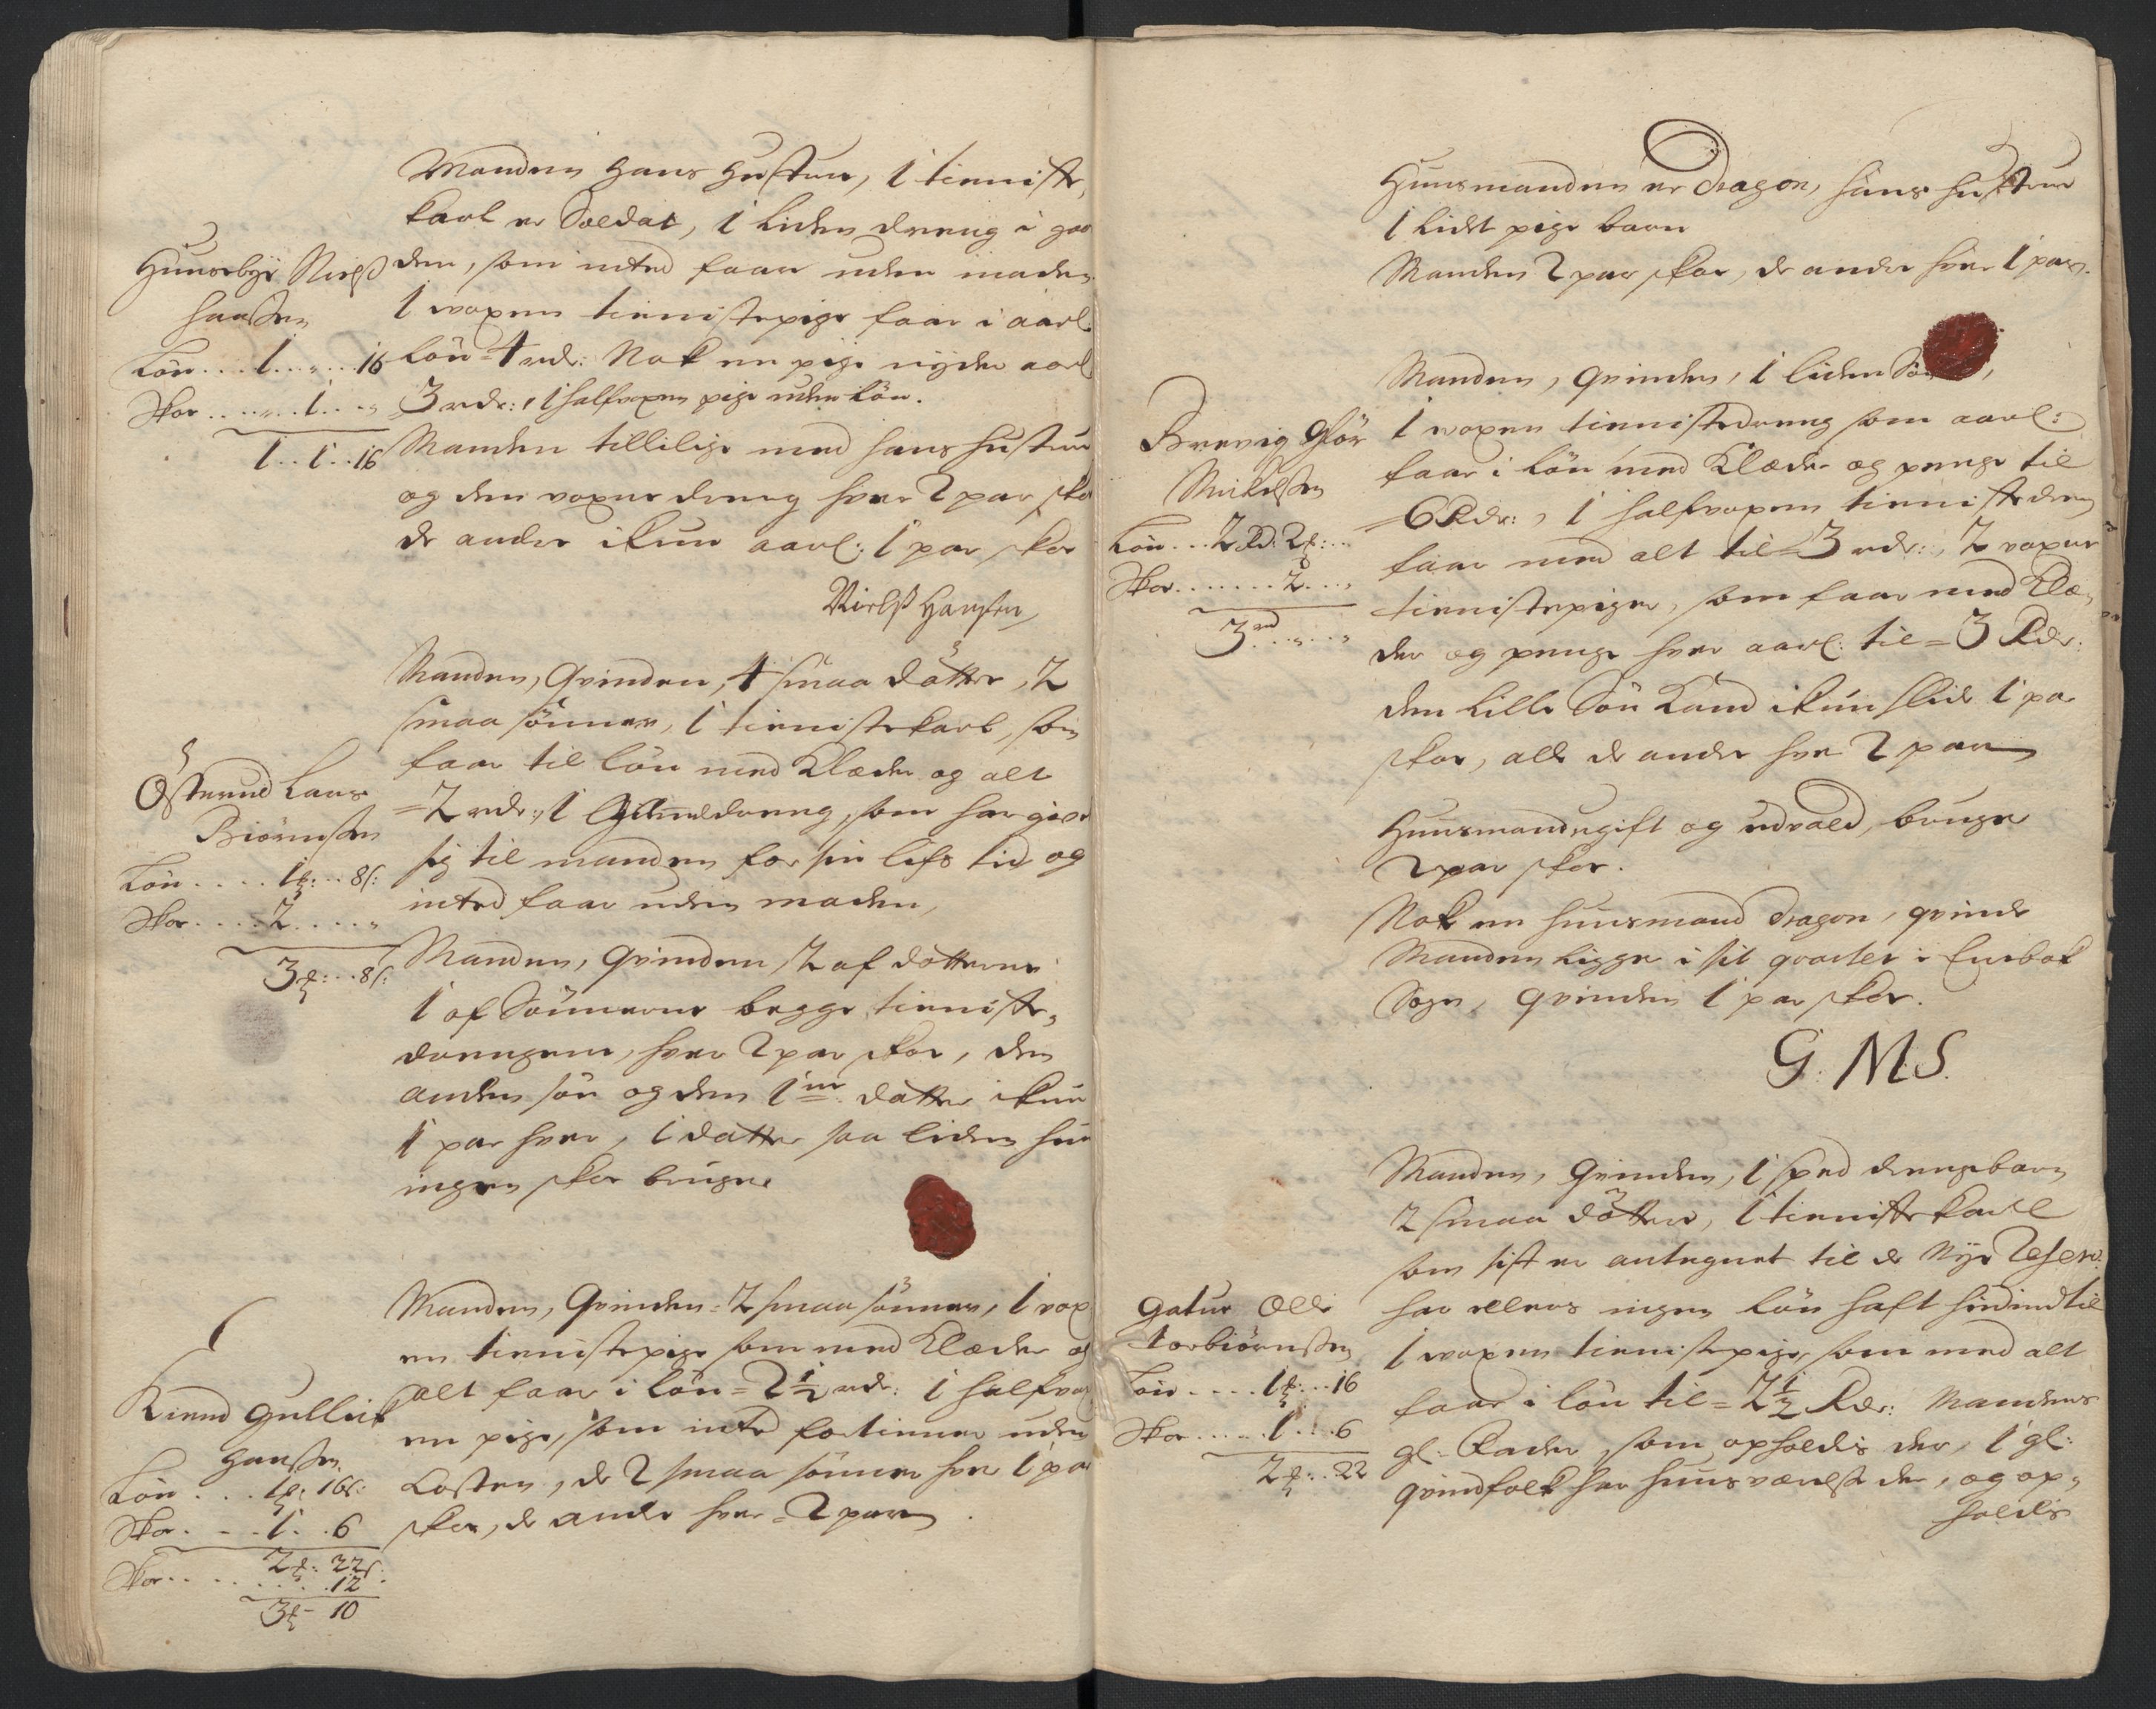 Manden hans Hustrue, 1 tienniste
karl er Soldat, 1 liden dreng i gaar
den, som inted faar uden maden
1 woxen tiennistepige faar i aarl.
Löen = 4 rdr: Nok en pige nyder aarl
3 rdr:, 1 halfvoxen pige uden lön.
Manden tillilige med hans hustrue
og den voxne dreng hver 2 par sko
de andre ikun aarl: 1 par skoe
Nielß Hanßen
Huusebye Nielß
Hanßen
Lön . . . 1 . . „ . . 16
Skoe . . . „ . . 1 . . „
1 . . 1 . . 16
Manden, Qvinden, 4 smaa døttre, 2
smaa sönner, 1 tiennistekarl, som
faar til lön med Klæder og alt
= 7 rdr:, 1 dreng, som har gived
sig til manden for sin lifs tid og
inted faar uden maden,
Österud Lars
Biörnsen
Lön . . . . 1 . . 8 s:
Skoe . . . . 2 . . . . „
3 . . 8 s:
Manden, Qvinden, 2 af døtterne
1 af Sönnerne begge tienniste,
drengene, hver 2 par skoe, den
anden sön og den 1ne datter ikun
1 par hver, 1 datter saa liden hun
ingen skoe bruger
Manden, Qvinden = 2 smaa sönner, 1 vox
en tiennistepige som med Klæder og
alt faar i lön = 2 1/2 rdr: 1 halfvox
en pige, som inted fortienner uden
Kosten, de 2 smaa sönner hver 1 par
skoe, de andre hver = 2 par
Kinnd Gullick
Hanßen
Lön . . . 1 16 s:
Skoe . . . 1 . . 6
2 : 22 s:
Skoe . . . . . 12
3 - 10
Huusmanden er Dragon, hans hustrue
1 lidet pige barn
Manden 2 par skoe, de andre hver 1 par.
Manden, Qvinden, 1 liden Sön,
1 woxen tiennistedreng som aarl:
faar i lön med Klæder og penge til
= 6 Rdr:, 1 halfvoxen tiennistedreng
faar med alt til = 3 rdr:, 2 voxne
tiennistepiger, som faar med Klæ,
der og penge hver aarl: til = 3 Rdr:
den lille Sön kand ikun slide 1 par
skoe, alle de andre hver 2 par
Brevig Glör
Mickelsen
Lön . . 2 Rd. 2 : . .
Skoe . . . . . . 2 . . „
3 rd . . „ . . „
Huusmand ugift og udvald, bruger
2 par skoe.
Nok en huusmand dragon, qvinde
Manden ligger i sit qvarter i Enebak
Sogn, qvinden 1 par skoe.
G. M. S.
Manden, Qvinden, 1 sped drengebarn
2 smaa døttre, 1 tienniste karl
som sist er antegnet til de Nye Reserv:
har ellers ingen lön haft hidindtil
1 woxen tiennistepige, som med alt
faar i lön til = 2 1/2 Rdr: Mandens
gl: Fader, som opholdes der, 1 gl:
qvindfolk har huusværelse der, og op,
holdes
Gatue Olle
Torbiörnsen
Lön . . . . 1 : . . 16
Skoe . . . . . 1 . . . 6
2 : . . 22